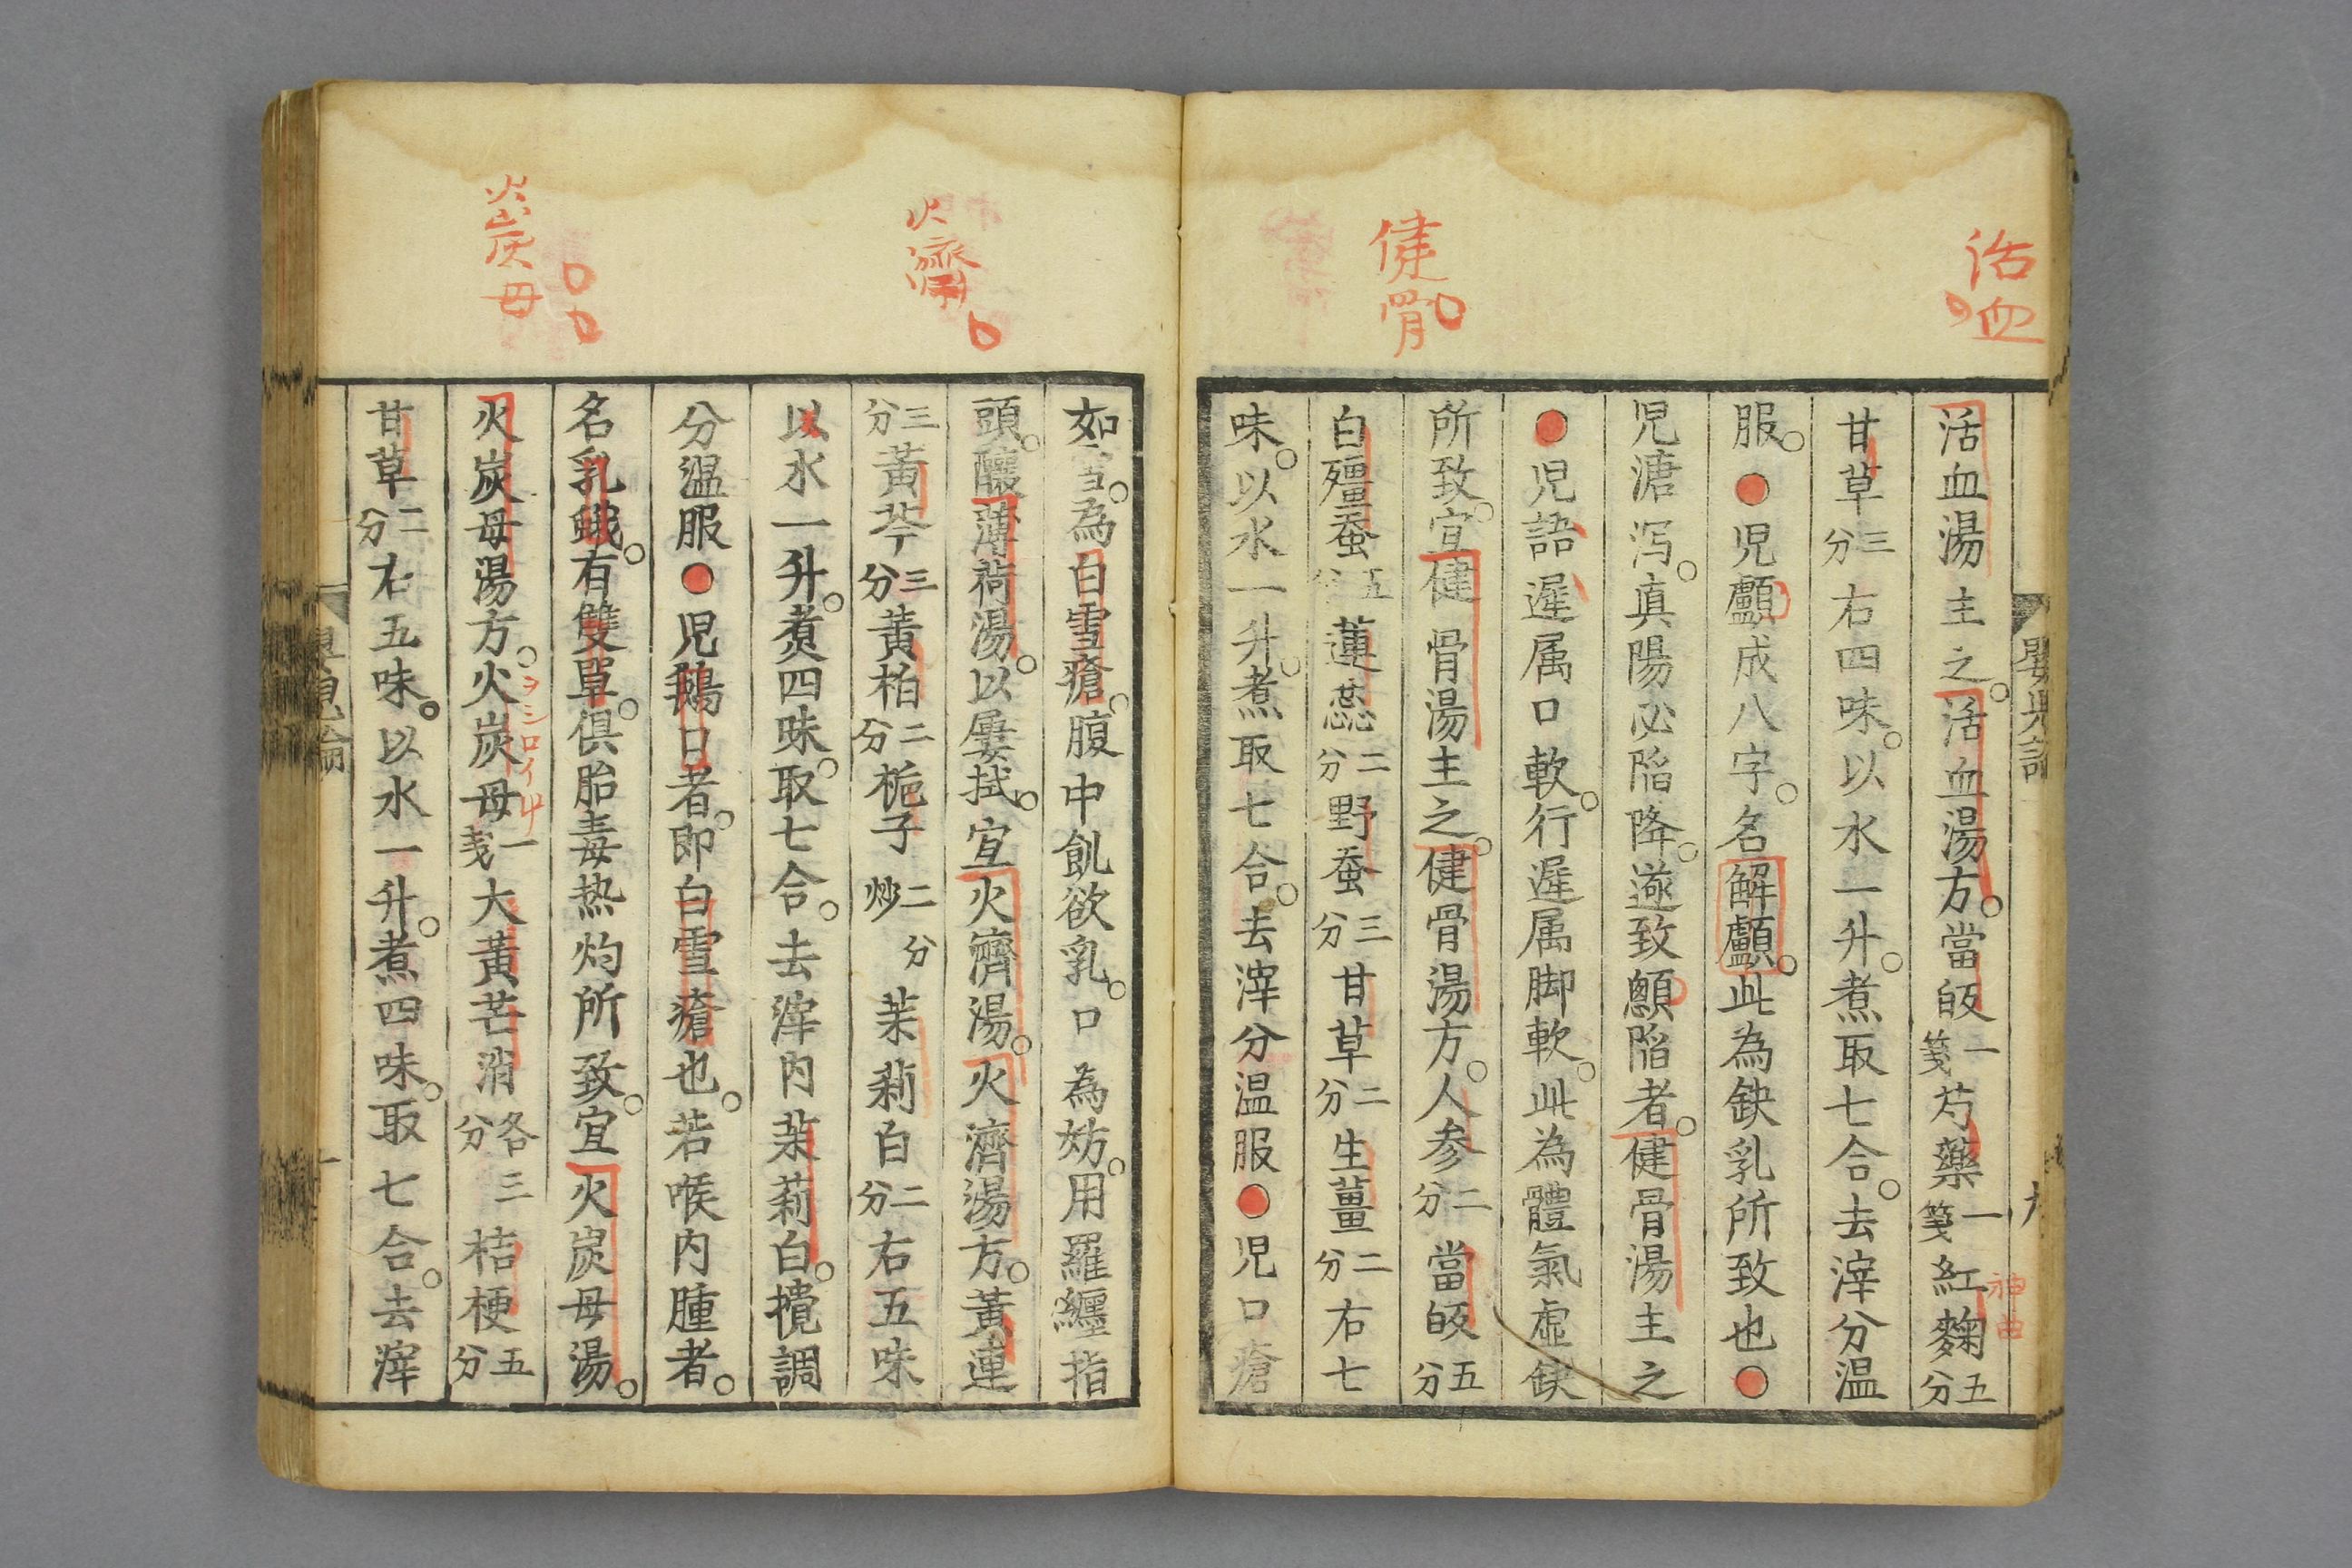 活血
健骨
活血湯主之。活血湯方。當皈一箋芍藥一箋紅麴五分
神曲
甘草三分右四味。以水一升。煮取七合。去滓分温
服。●児顱成八字。名解顱。此為鈌乳所致也●
児溏泻。真陽必陷降。遂致顖陷者。健骨湯主之
●児語遲属口軟。行遲属脚軟。此為體氣虛鈌
所致。宜健骨湯主之。健骨湯方。人参二分當皈五分
白殭蚕五分蓮蕊二分野蚕三分甘草二分生薑二分右七
味。以水一升。煮取七合。去滓分温服●児口瘡
火濟
火炭母
如雪。為白雪瘡。腹中飢欲乳。口為妨。用羅纏指
頭。釀薄荷湯。以屢拭。宜火濟湯。火濟湯方。黃連
三分黃芩三分黃柏二分梔子炒二分茉莉白二分右五味
以水一升。煮四味。取七合。去滓内茉莉白。攪調
分温服●児鵝口者。即白雪瘡也。若喉内腫者。
名乳蛾。有雙單。俱胎毒热灼所致。宜火炭母湯。
火炭母湯方。火炭母一戔大黃芒消各三分桔梗五分
ヲシロイ
甘草二分右五味。以水一升。煮四味。取七合。去滓